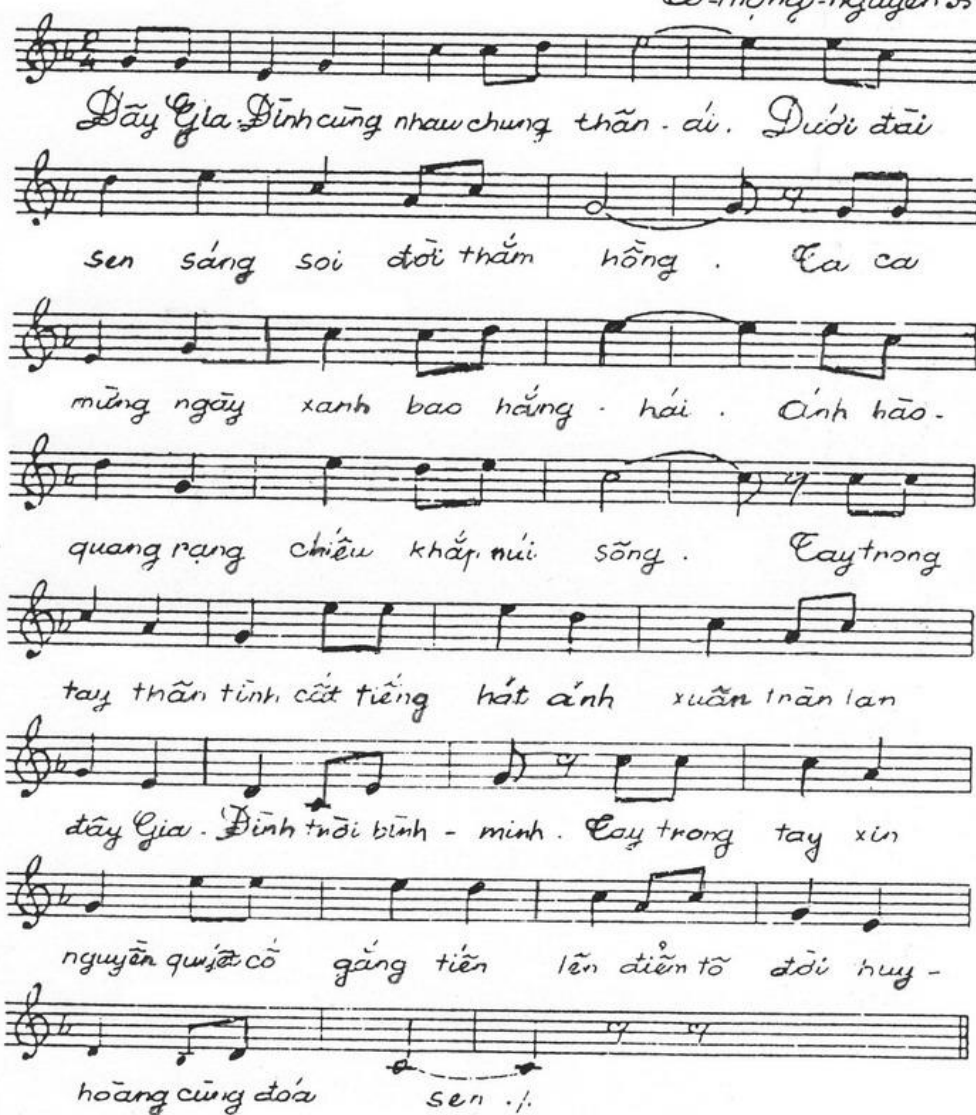 Đây Gia-Đình cùng nhau chung thân-ái. Dưới đài
sen sáng soi đời thắm hồng. Ta ca
mừng ngày xanh bao hăng-hái. Ánh hào-
quang rạng chiếu khắp núi sông. Tay trong
tay thân tình cất tiếng hát ánh xuân tràn lan
đây Gia-Đình trời bình-minh. Tay trong tay xin
nguyện quyết cố gắng tiến lên điểm tô đời huy-
hoàng cùng đóa sen ./.